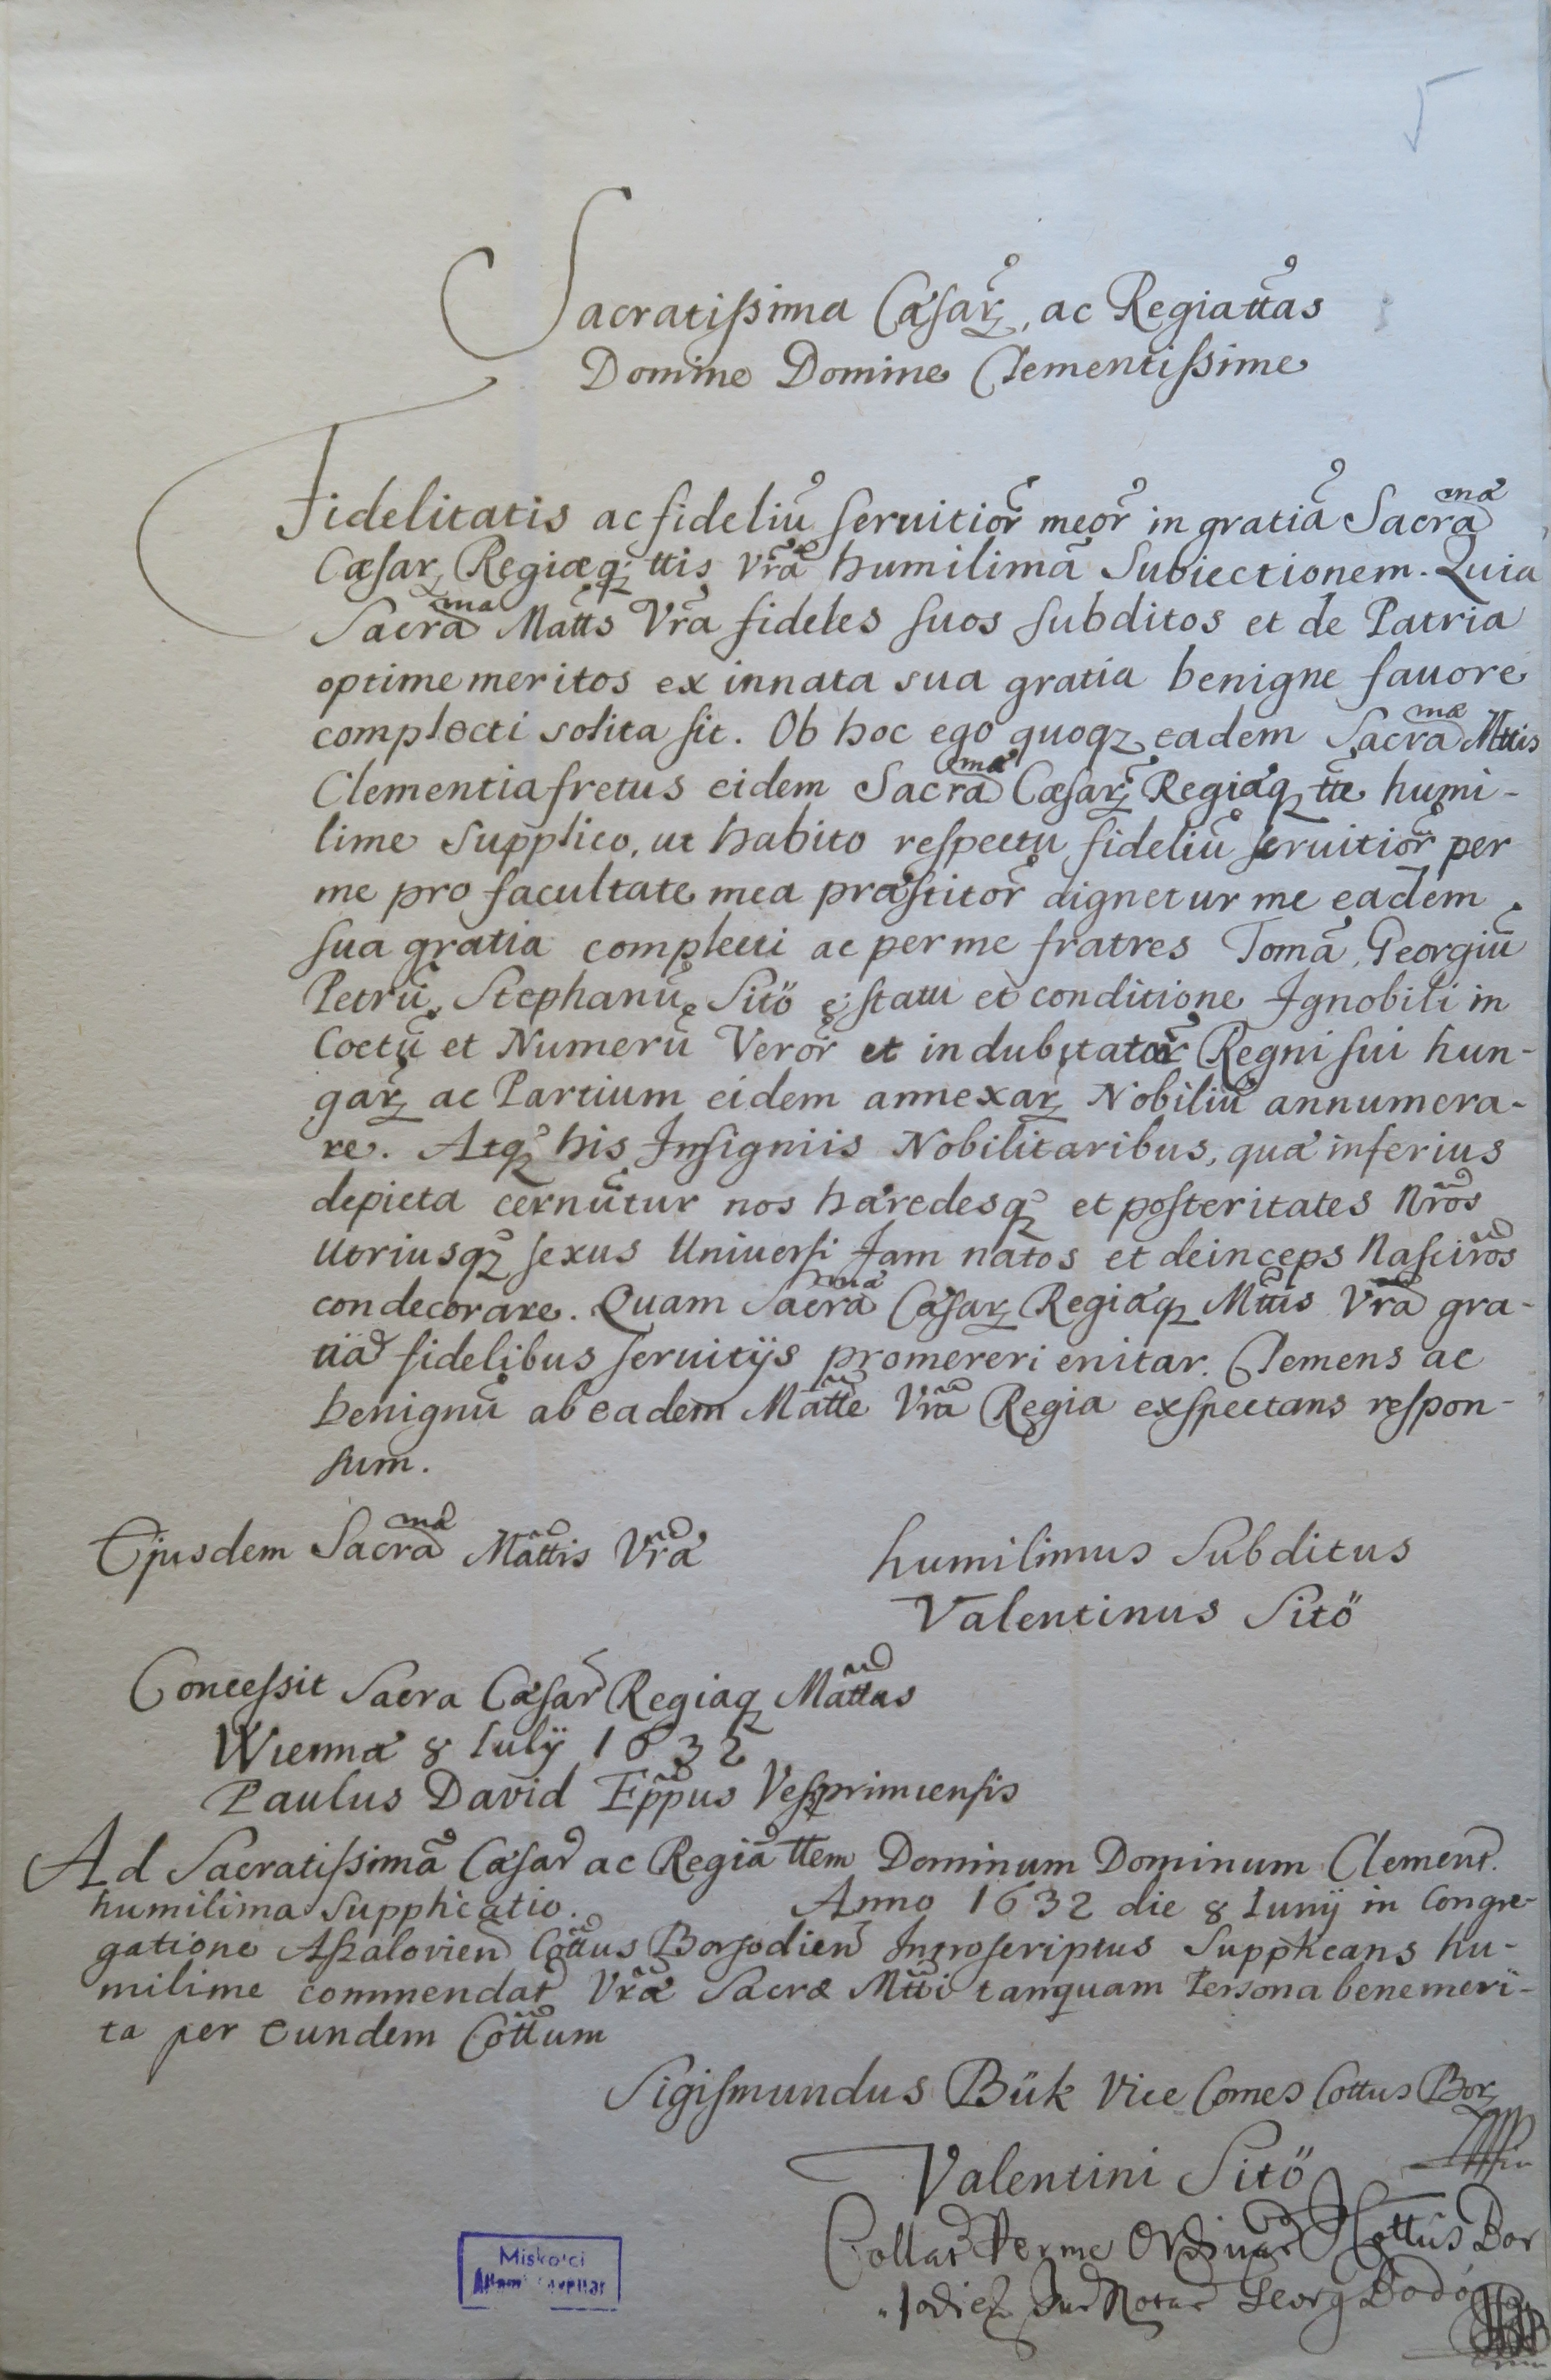 Sacratissima Cæsar, ac Regia ttas
Domine Domine Clementissime
Fidelitatis ac fideliũ servitior̃ meor̃ in gratiã Sacrama
Cæsar Regiæq ttis Vrã humilimã Subiectionem. Quia
Sacrama Matts Vrã fideles suos subditos et de Patria
optime meritos ex innata sua gratia benigne favore
complecti solita sit. Ob hoc ego quoqz eadem Sacramæ Mttis
Clementia fretus eidem Sacramæ Cæsar Regiæq tte humi-
lime Supplico, ut habito respectu fideliũ seruitior̃ per
me pro facultate mea præstitor̃ dignetur me eadem
sua gratia complecti ac per me fratres Tomã, Georgiũ
Petrũ, Stephanũ Sitö e statu et conditione Ignobili in
Coetũ et Numerũ Veror̃ et indubitator̃ Regni sui hun-
gar ac Partium eidem annexar Nobiliũ annumera-
re. Atq his Insigniis Nobilitaribus, quæ inferius
depicta cernũtur nos hæredesq et posteritates nr̃os
Utriusqz sexus Universi Jam natos et deinceps Nascitr̃os
condecorare. Quam Sacramæ Cæsar Regiæq Mttis Vræ gra-
tiã fidelibus seruitijs promereri enitar. Clemens ac
benignũ ab eadem Matte Vrã Regia exspectans respon-
sum.
Ejusdem Sacramæ Mattis Vræ humilimus Subditus
Valentinus Sitö
Concessit Sacra Cæsar Regiaq Mattas
Wiennæ 8 Iulij 1632
Paulus David Eppus Vesprimiensis
Ad Sacratissimã Cæsar ac Regiã ttem Dominum Dominum Clement.
humilima Supplicatio. Anno 1632 die 8 Iunij in Congre-
gatione Aszalovien Cottus Borsodien Introscriptus Supplicans hu-
milime commendat Vræ Sacræ Mtti tanquam Persona benemeri-
ta per eundem Cottum
Sigismundus Bük Vice Comes Cottus Bor
Valentini Sitö
Collat Per me Ordinar Cottus Bor
sodien Jur Notar Georg Bodó
Miskolci
Állami Levéltár